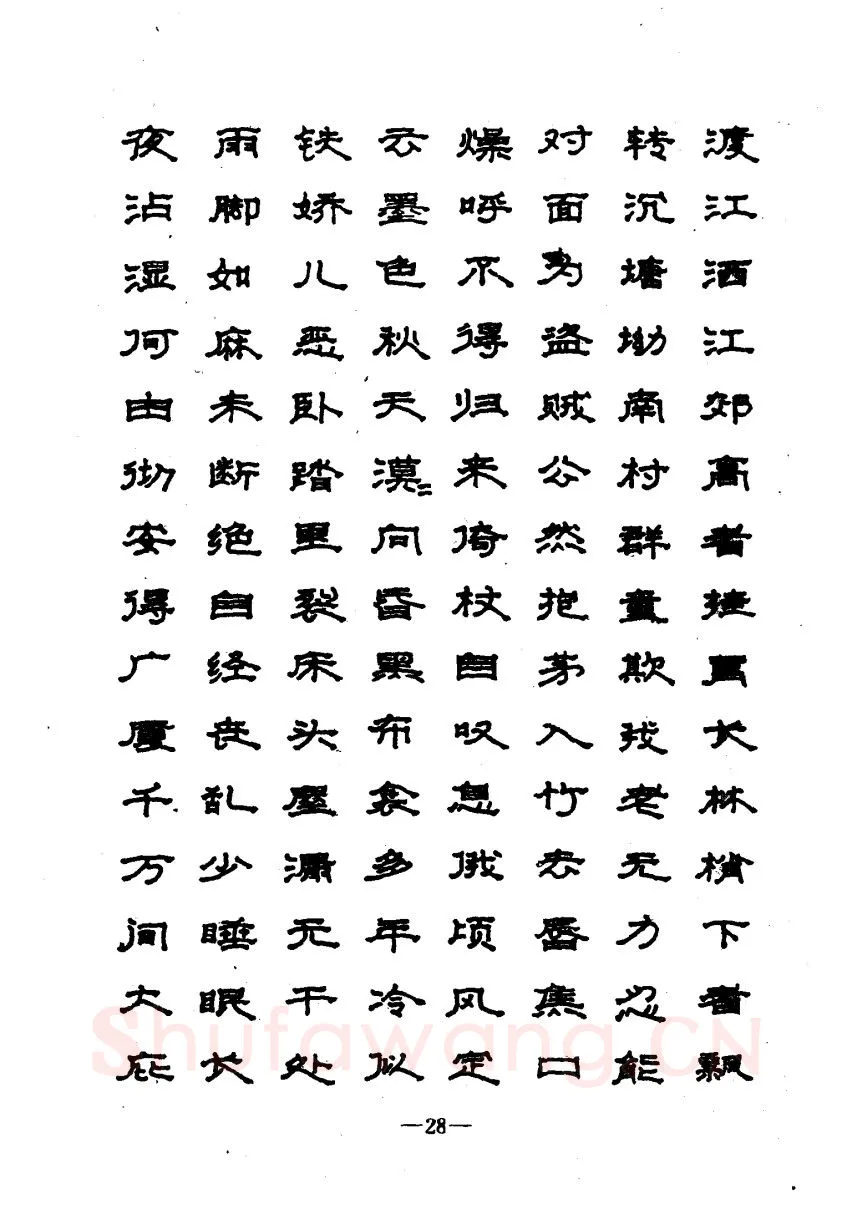 渡江洒江郊高者挂罥长林梢下者飘
转沉塘坳南村群童欺我老无力忍能
对面为盗贼公然抱茅入竹去唇焦口
燥呼不得归来倚杖自叹息俄顷风定
云墨色秋天漠〻向昏黑布衾多年冷似
铁娇儿恶卧踏里裂床头屋漏无干处
雨脚如麻未断绝自经丧乱少睡眠长
夜沾湿何由彻安得广厦千万间大庇
—28—
Shufawang.CN